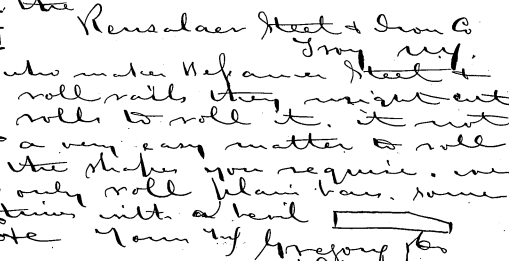 the
Rensalaer Steel & Iron Co
Troy N.Y.
who makes Besamer Steel &
roll rails they might cut
rolls to roll it. it not
a very easy matter to roll
the shapes you require. we
only roll plain bars. some
times with a bevil
Yours Gregory & Co